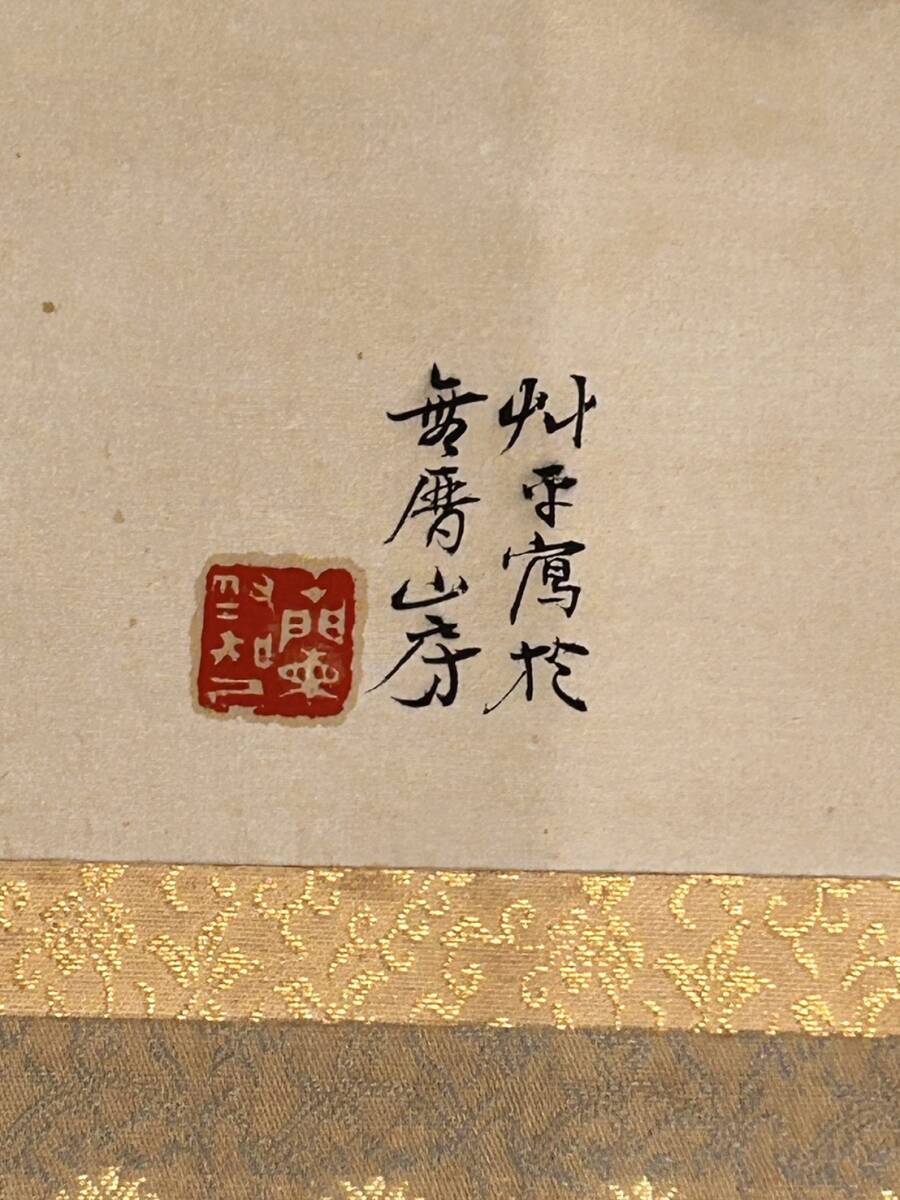 艸平寫於
無曆山房